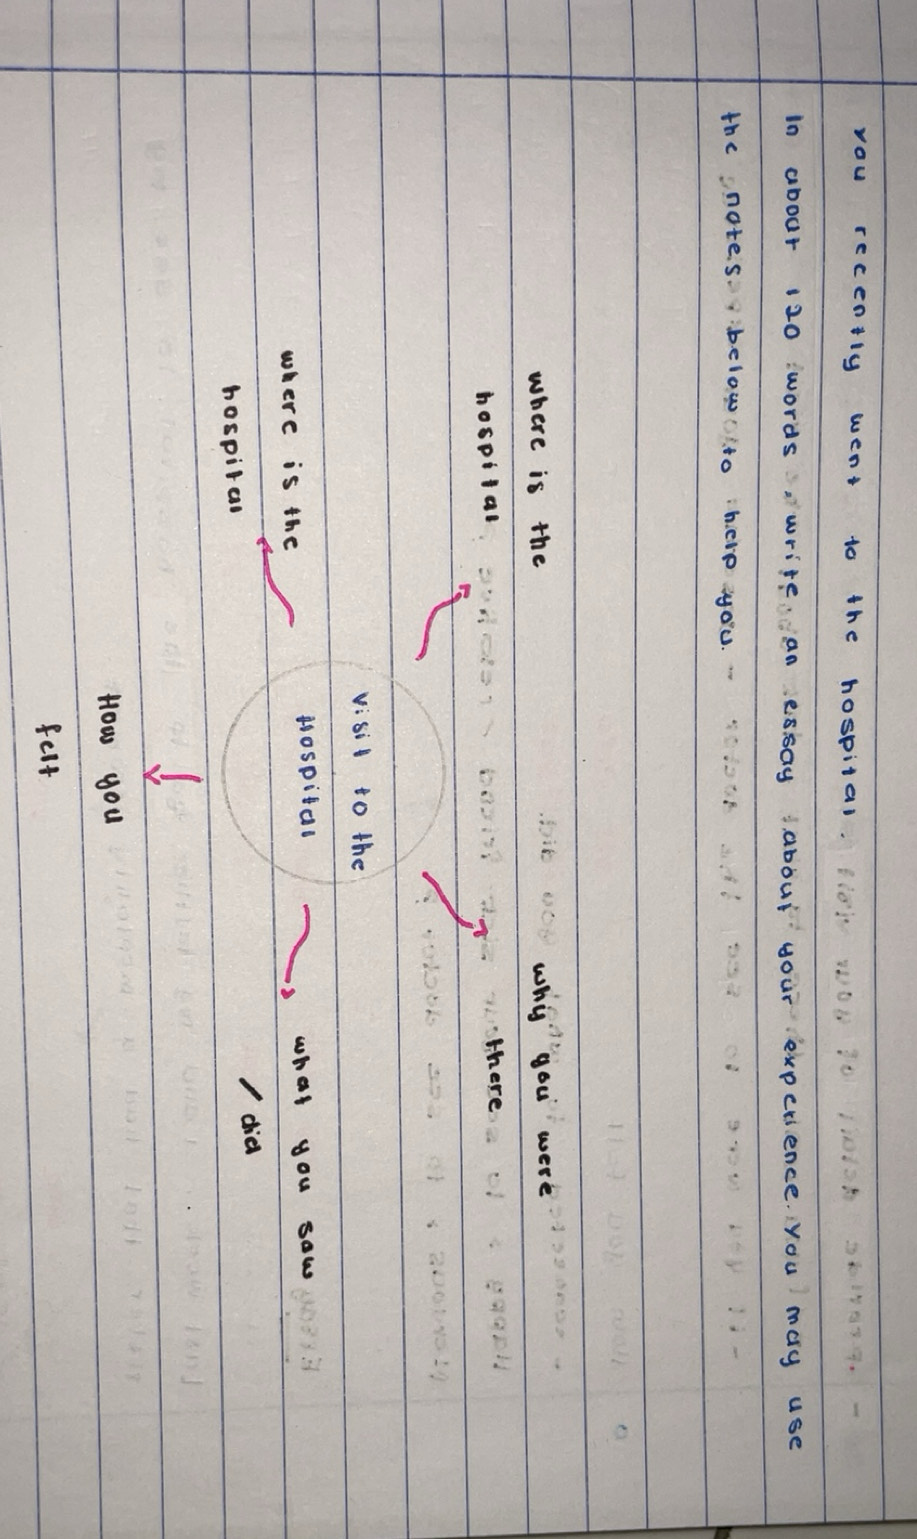 You recently went to the hospital.
In about 120 words, write an essay about your experience. You may use
the notes below to help you.
where is the
hospital
why you were
there
Visit to the
Hospital
where is the
hospital
what you saw
/ did
How you
felt